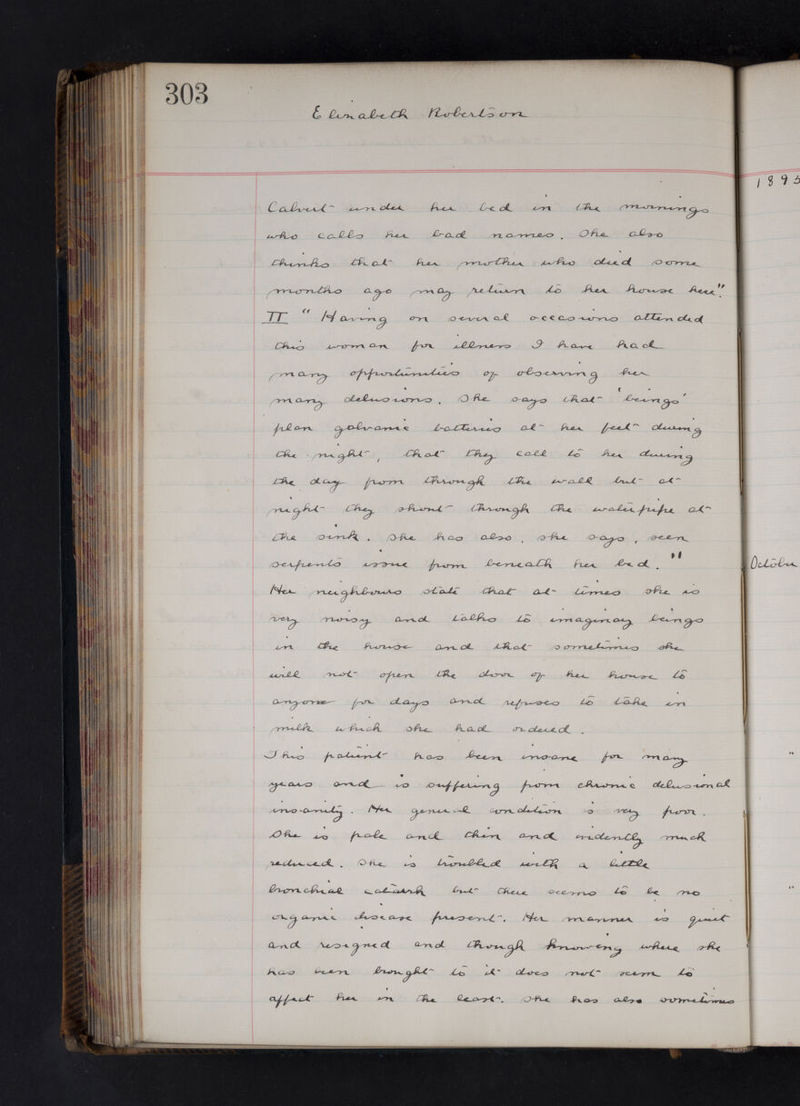 303
Elizabeth Robertson
1895
Calvert under her bed in the mornings
who calls her bad names. She also
thinks that her mother who died some
months ago may return to her house here"
II "Having on several occasions attended
this woman for illness I have had
many opportunities of observing her
many delusions. She says that 'beings'
plan galvanic batteries at her feet during
the night, that they call to her during
the day from through the wall but at
night they shout through the water pipe at
the sink. She has also, she says, seen
serpents issue from beneath her bed."
Her neighbours state that at times she is
very noisy and talks to imaginary beings
in the house and that sometimes she
will not open the door of her house to
anyone for days and refuses to take in
milk which she had ordered.
This patient has been insane for many
years and is suffering from chronic delusional
insanity. Her general condition is very poor.
She is pale and thin and evidently much
reduced. She is troubled with a little
bronchial catarrh but there seems to be no
organic disease present. Her manner is quiet
and resigned and though knowing where she
has been brought to it does not seem to
affect her in the least. She has also sometimes
October